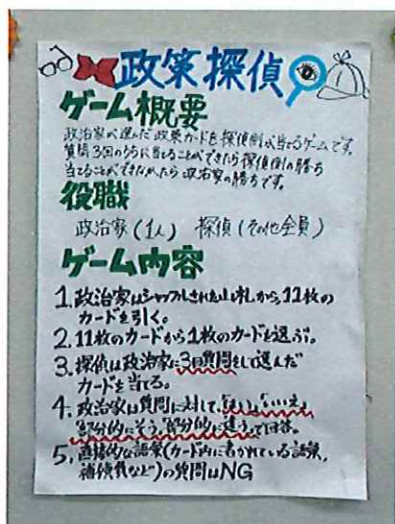 政策探偵
ゲーム概要
政治家が選んだ政策カードを探偵側が当てるゲームです。
質問3回のうちに当てることができたら探偵側の勝ち
当てることができなかったら政治家の勝ちです。
役職
政治家(1人) 探偵(その他全員)
ゲーム内容
1.政治家はシャッフルされた山札から11枚の
カードを引く。
2.11枚のカードから1枚のカードを選ぶ。
3.探偵は政治家に3回質問をして選んだ
カードを当てる。
4.政治家は質問に対して、「はい」、「いいえ」
「部分的にそう」「部分的に違う」で回答。
5.直接的な語彙(カード内に書かれている語彙、
補償費など)の質問はNG